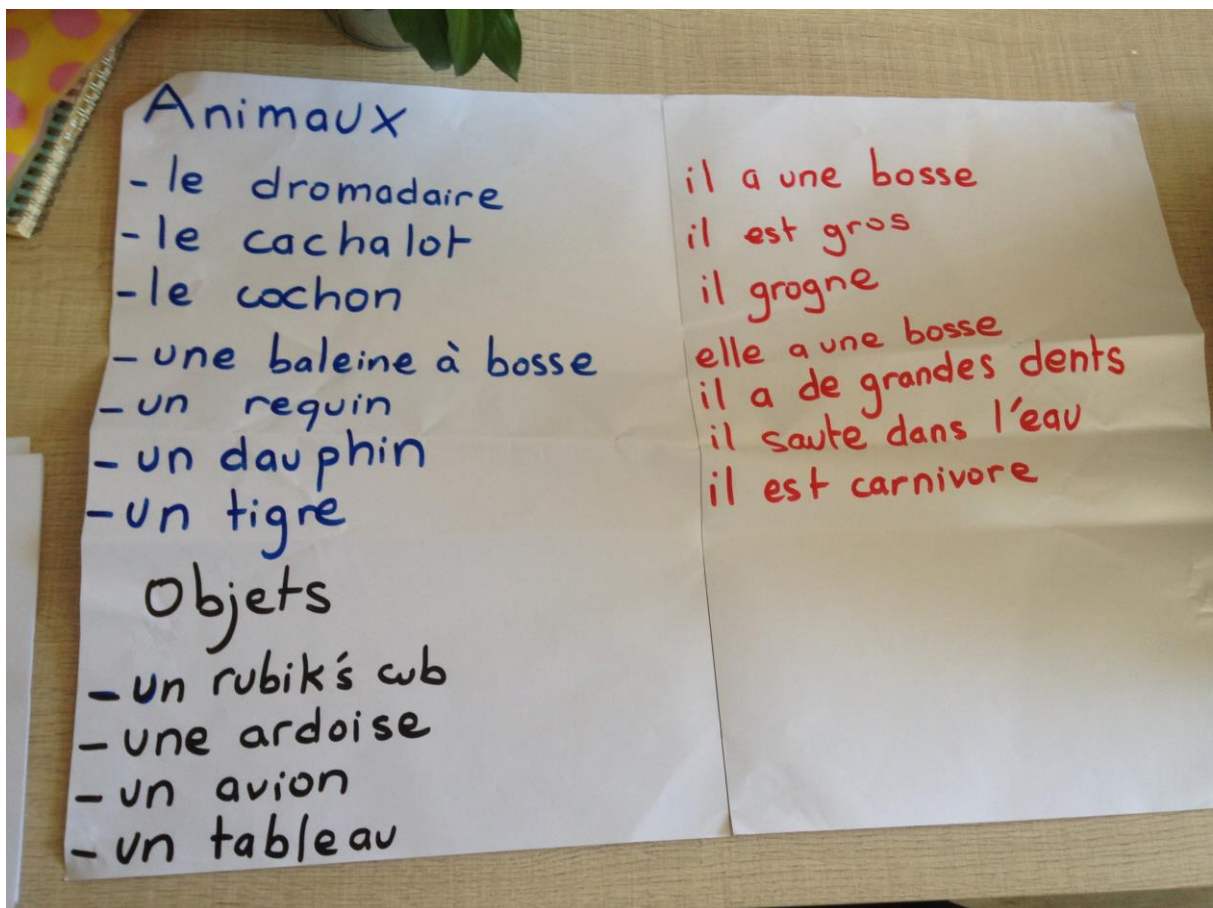 Animaux
- le dromadaire
- le cachalot
- le cochon
- une baleine à bosse
- un requin
- un dauphin
- un tigre
Objets
- un rubik's cub
- une ardoise
- un avion
- un tableau
il a une bosse
il est gros
il grogne
elle a une bosse
il a de grandes dents
il saute dans l'eau
il est carnivore